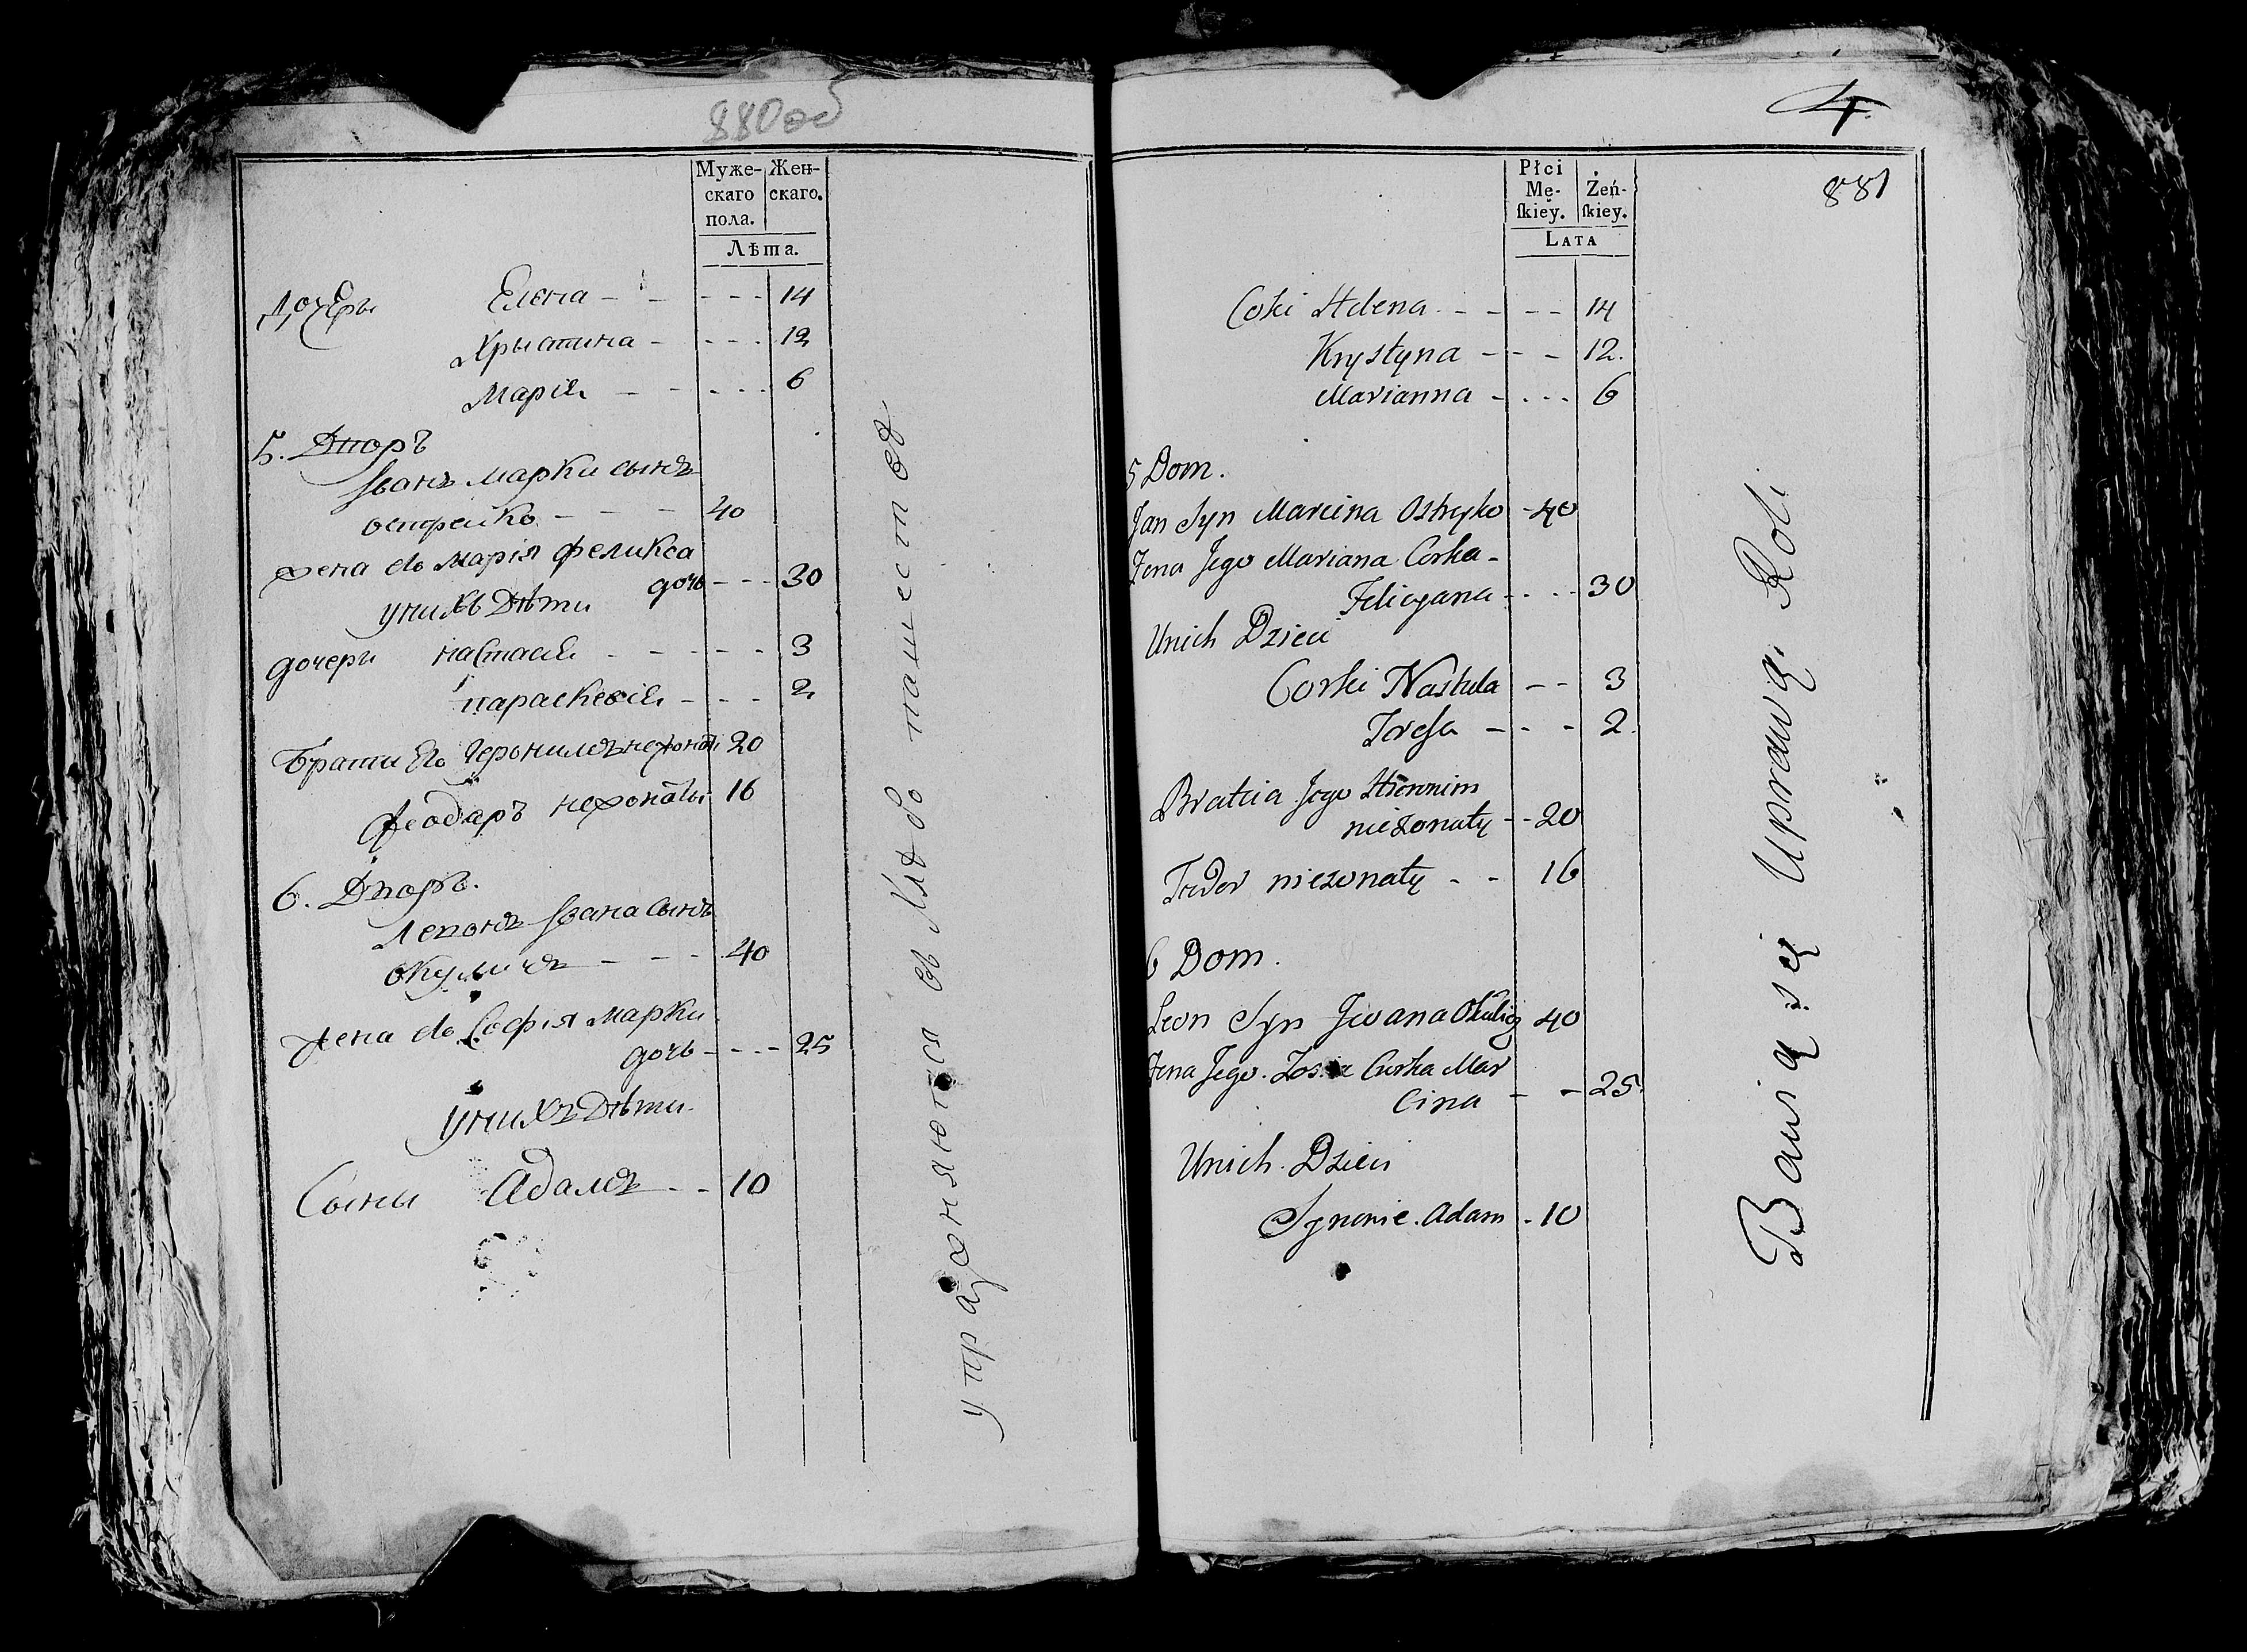 880об
Муже-
скаго
пола.
Жен-
скаго.
Лѣта.
Дочеры Елена - - - - - 14
Хрыстина - - - - 12
Марія - - - - - 6
5. Двор
Іванъ марки сынъ
острейко - - - 40
жена его марія феликса
дочь - - - 30
унихъ Дѣти
дочери настасія - - - - - 3
параскевія - - - 2
Браты Его Иеронимъ нежонаты 20
Феодаръ нежонаты 16
6. Двор.
Левонъ Івана сынъ
окуличъ - - - 40
жена его Софія марки
дочь - - - 25
унихъ Дѣти.
Сыны Адамъ - - 10
упражняются въ Хлѣбопашествѣ
4
881
Płci
Mę-
skiey.
Żeń-
skiey.
Lata
Coki Helena - - - - - 14
Krystyna - - - 12.
Marianna - - - - 6
5 Dom.
Jan Syn Marcina Ostreyko - 40
Żona Jego Mariana Corka -
Felicyana - - - - 30
Unich Dzieci
Corki Nastula - - 3
Teresa - - - 2.
Bratcia Jego Hieronim
nieżonaty - - 20
Teodor nieżonaty - - 16
6 Dom.
Leon Syn Jwana Okulicz 40
Żona Jego. Zosia Corka Mar
cina - - 25.
Unich. Dzieci
Synowie. Adam . 10
Bawią się Uprawą Roli